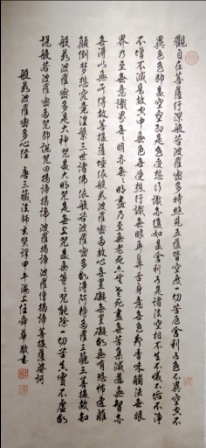 觀自在菩薩行深般若波羅蜜多時照見五蘊皆空度一切苦厄舍利子色不異空空不
異色色即是空空即是色受想行識亦復如是舍利子是諸法空相不生不滅不垢不淨
不增不減是故空中無色無受想行識無眼耳鼻舌身意無色聲香味觸法無眼
界乃至無意識界無無明亦無無明盡乃至無老死亦無老死盡無苦集滅道無智亦
無得以無所得故菩提薩埵依般若波羅蜜多故心無罣礙無罣礙故無有恐怖遠離
顛倒夢想究竟涅槃三世諸佛依般若波羅蜜多故得阿耨多羅三藐三菩提故知
般若波羅蜜多是大神咒是大明咒是無上咒是無等等咒能除一切苦真實不虛故
說般若波羅蜜多咒即說咒曰揭諦揭諦波羅揭諦波羅僧揭諦菩提薩婆訶
般若波羅蜜多心經 唐三藏法師玄奘譯 甲午 海上任 華敬書